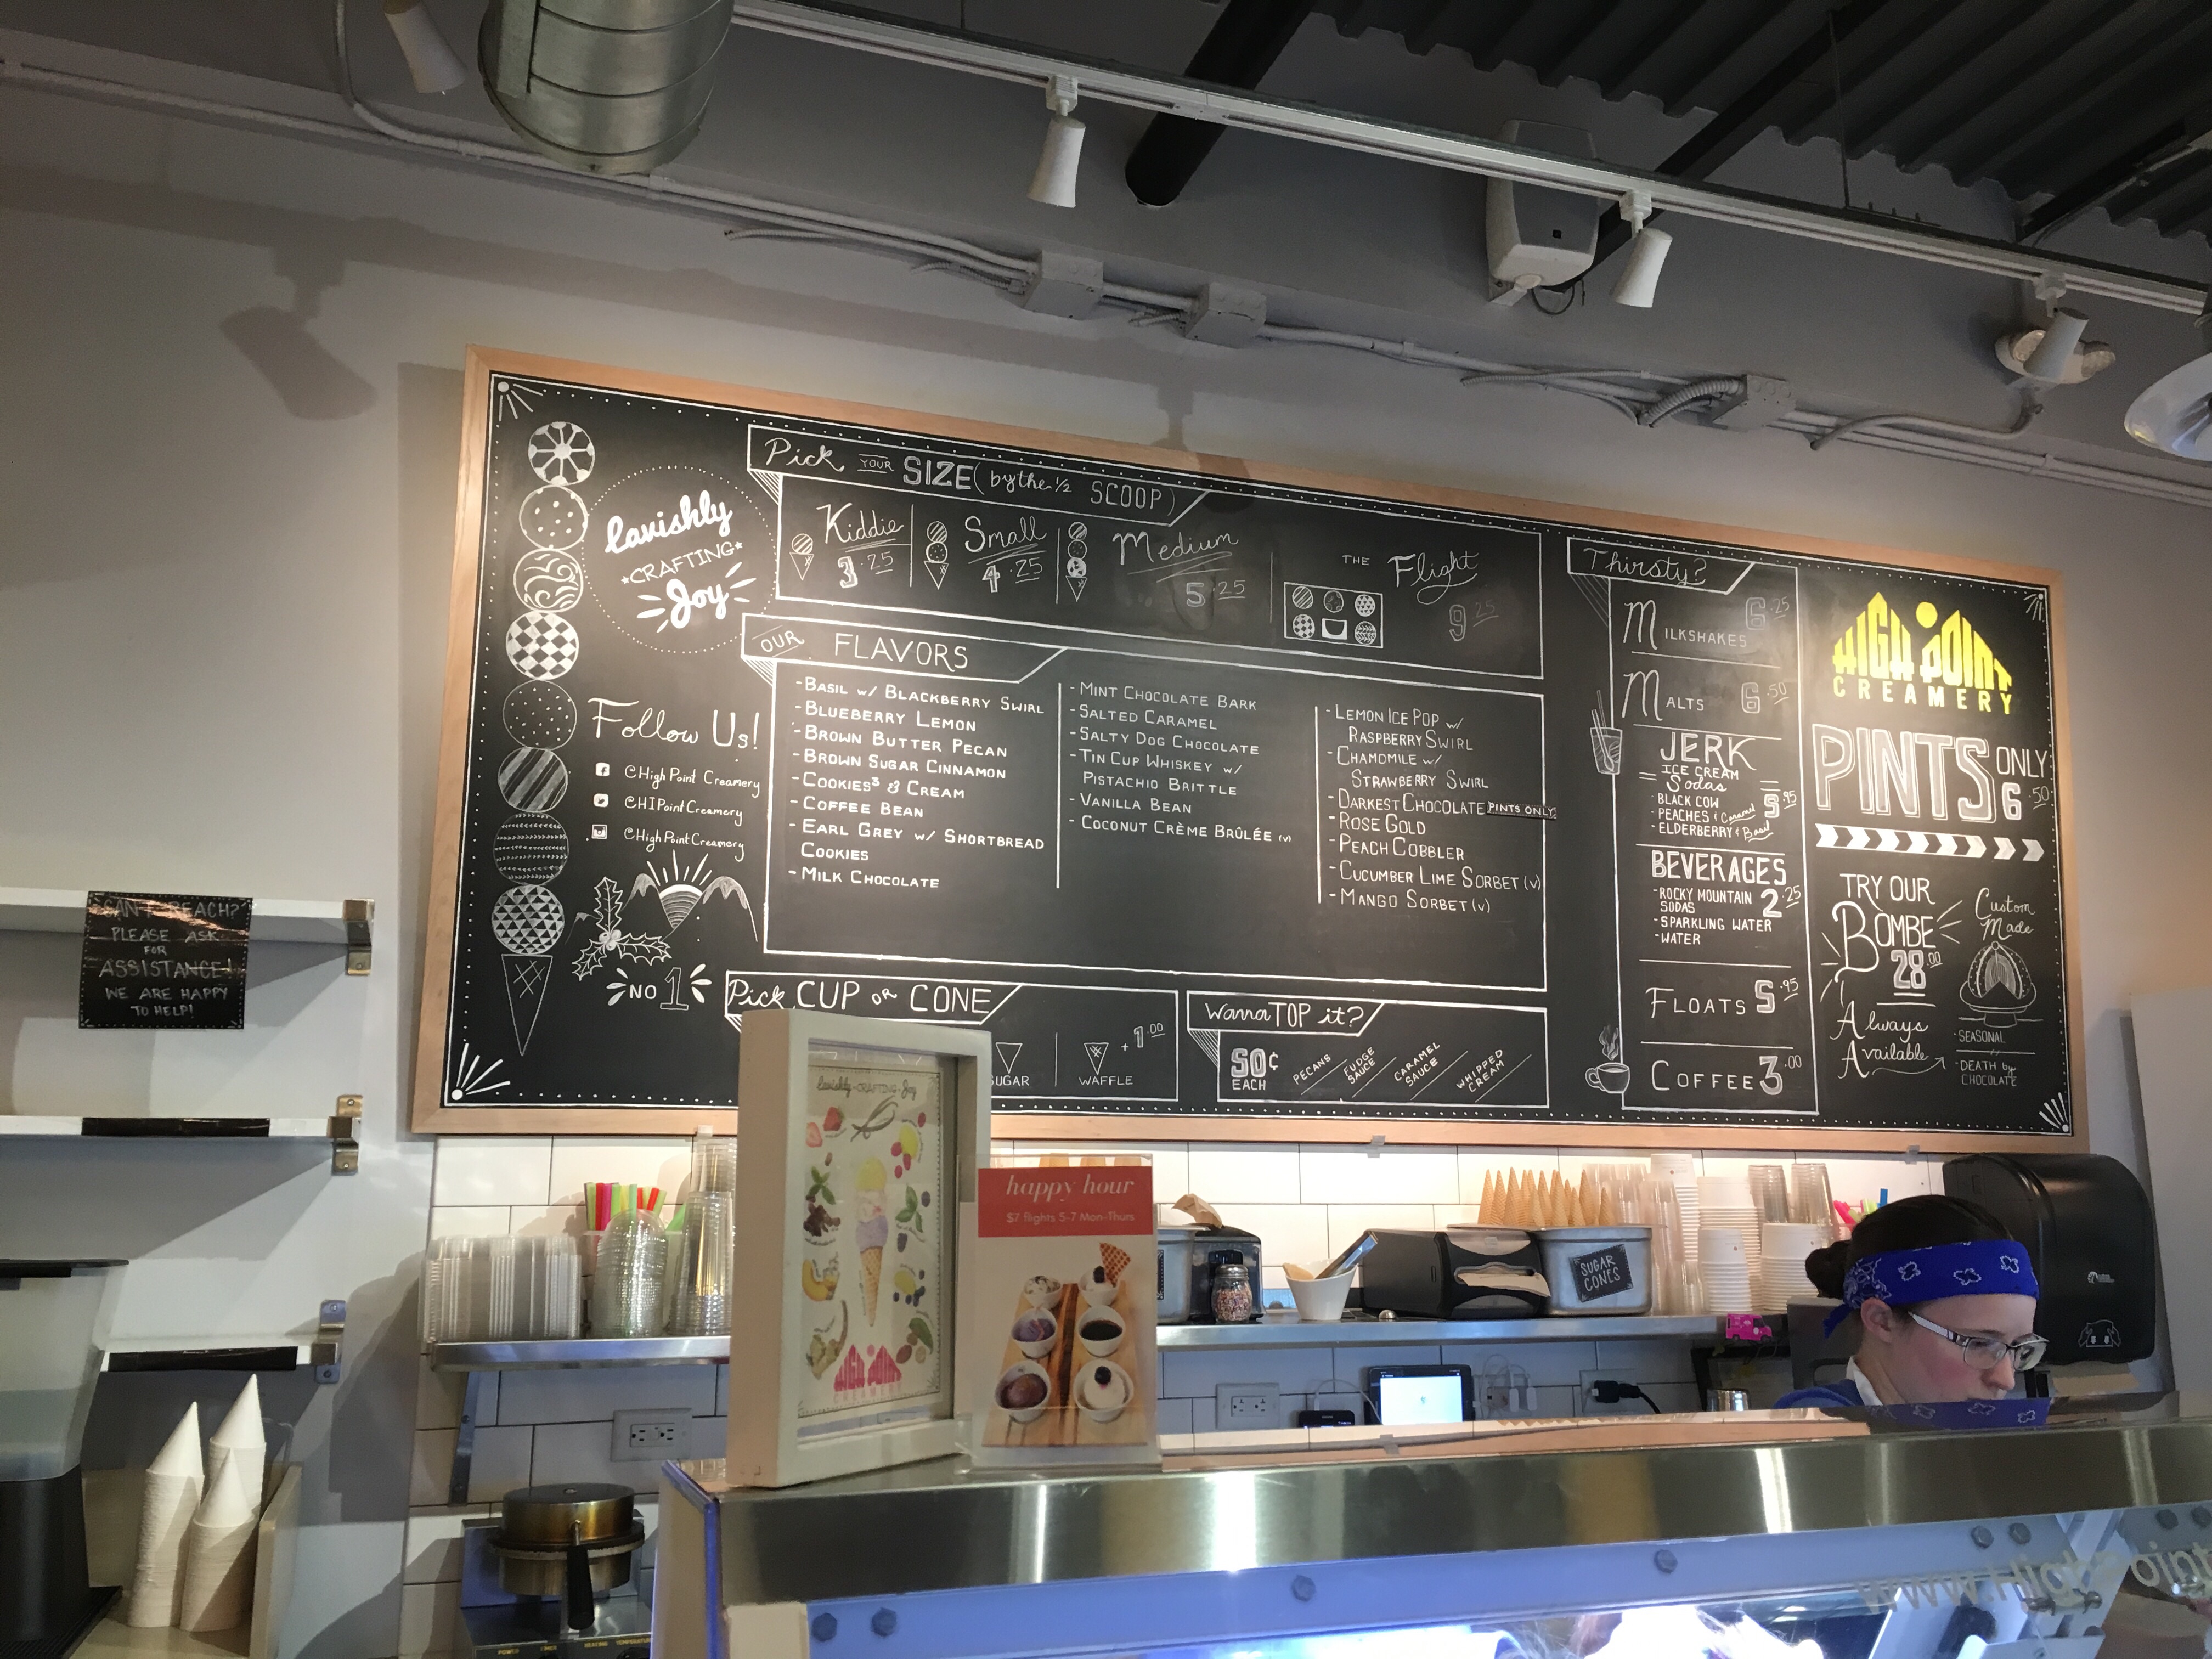 lavishly
CRAFTING
Joy
Follow Us!
@High Point Creamery
@HIPointCreamery
@HighPointCreamery
NO 1
Pick YOUR SIZE (by the ½ SCOOP)
Kiddie
3.25
Small
4.25
Medium
5.25
THE Flight
9.25
OUR FLAVORS
-BASIL W/ BLACKBERRY SWIRL
-BLUEBERRY LEMON
-BROWN BUTTER PECAN
-BROWN SUGAR CINNAMON
-COOKIES³ & CREAM
-COFFEE BEAN
-EARL GREY W/ SHORTBREAD
COOKIES
-MILK CHOCOLATE
-MINT CHOCOLATE BARK
-SALTED CARAMEL
-SALTY DOG CHOCOLATE
-TIN CUP WHISKEY W/
PISTACHIO BRITTLE
-VANILLA BEAN
-COCONUT CRÈME BRÛLÉE (V)
-LEMON ICE POP W/
RASPBERRY SWIRL
-CHAMOMILE W/
STRAWBERRY SWIRL
-DARKEST CHOCOLATE PINTS ONLY
-ROSE GOLD
-PEACH COBBLER
-CUCUMBER LIME SORBET (V)
-MANGO SORBET (V)
Pick CUP OR CONE
SUGAR
WAFFLE
+1.00
Wanna TOP it?
50¢
EACH
PECANS
FUDGE
SAUCE
CARAMEL
SAUCE
WHIPPED
CREAM
Thirsty?
MILKSHAKES 6.25
MALTS 6.50
JERK
ICE CREAM
Sodas
-BLACK COW
-PEACHES & Caramel
-ELDERBERRY & Basil
5.95
BEVERAGES
-ROCKY MOUNTAIN
SODAS
2.25
-SPARKLING WATER
-WATER
FLOATS 5.95
COFFEE 3.00
HIGH POINT
CREAMERY
PINTS ONLY
6.50
TRY OUR
BOMBE
28.00
Always
Available
Custom
Made
-SEASONAL
-DEATH by
CHOCOLATE
CAN'T REACH?
PLEASE ASK
FOR
ASSISTANCE!
WE ARE HAPPY
TO HELP!
lavishly CRAFTING Joy
HIGH POINT
CREAMERY
happy hour
$7 flights 5-7 Mon-Thurs
SUGAR
CONES
POWER
TIMER
HEATING
TEMPERATURE